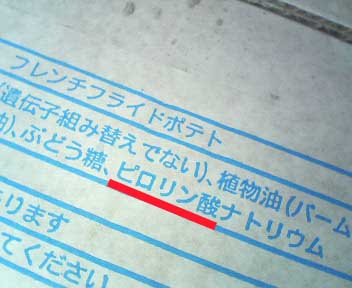 フレンチフライドポテト
遺伝子組み替えでない)、植物油(パーム
油)、ぶどう糖、ピロリン酸ナトリウム
ります
てください